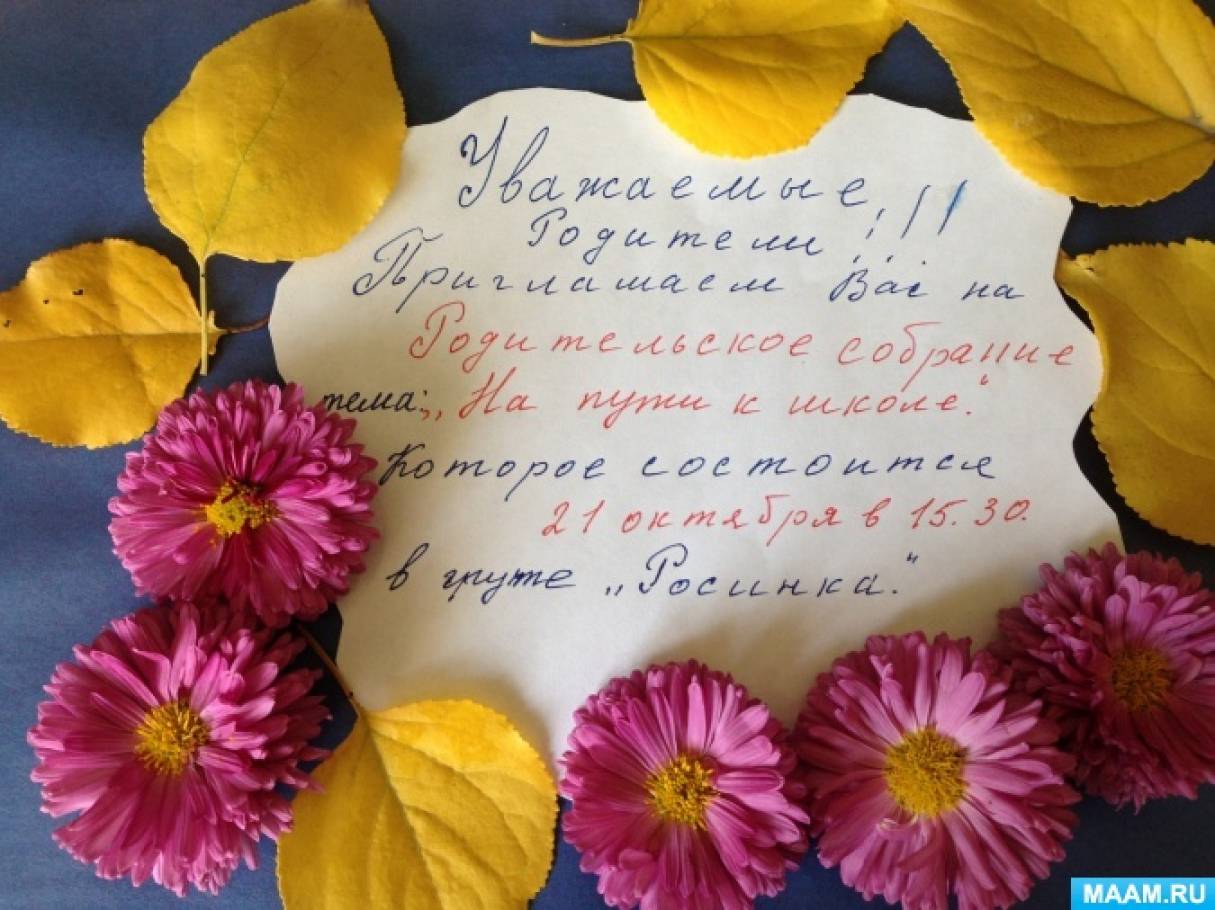 Уважаемые
Родители!!!
Приглашаем Вас на
Родительское собрание
тема: „На пути к школе."
которое состоится
21 октября в 15.30.
в группе „Росинка."
MAAM.RU